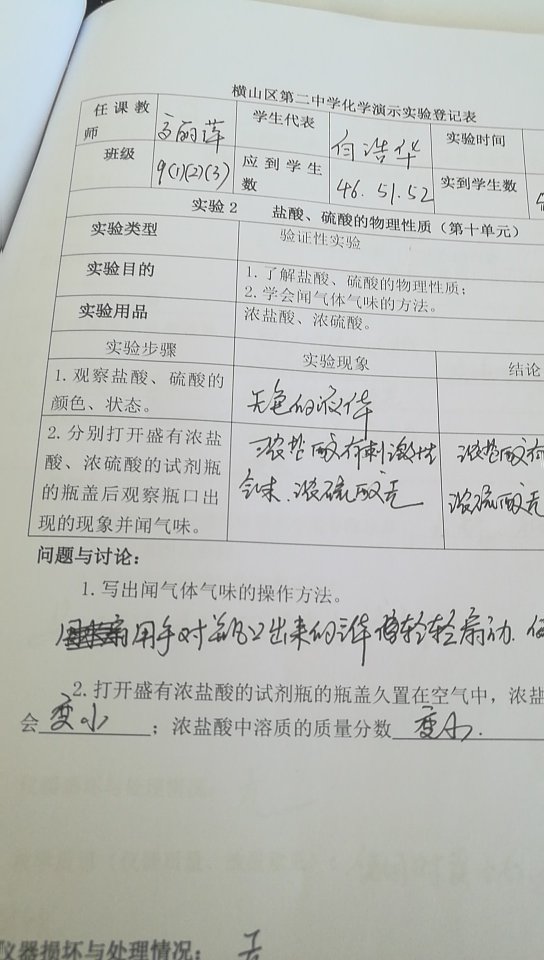 横山区第二中学化学演示实验登记表
任课教师 高丽萍 学生代表 白浩华 实验时间
班级 9(1)(2)(3) 应到学生数 46.51.52 实到学生数
实验2 盐酸、硫酸的物理性质（第十单元）
实验类型 验证性实验
实验目的 1.了解盐酸、硫酸的物理性质；
2.学会闻气体气味的方法。
实验用品 浓盐酸、浓硫酸。
实验步骤 实验现象 结论
1.观察盐酸、硫酸的
颜色、状态。
无色的液体
2.分别打开盛有浓盐
酸、浓硫酸的试剂瓶
的瓶盖后观察瓶口出
现的现象并闻气味。
浓盐酸有刺激性
气味.浓硫酸无
浓盐酸有
浓硫酸无
问题与讨论：
1.写出闻气体气味的操作方法。
用手对瓶口出来的气体轻轻扇动.
2.打开盛有浓盐酸的试剂瓶的瓶盖久置在空气中，浓盐
会变小；浓盐酸中溶质的质量分数变小.
仪器损坏与处理情况： 无